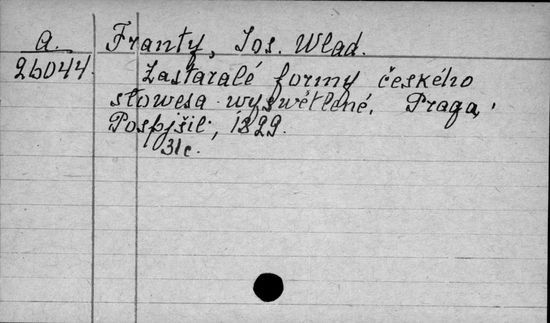 a. Franty, Jos. Wlad.
26044. Zastaralé formy českého
slowesa wyswětlené. Praga,
Pospjšil, 1829.
31c.